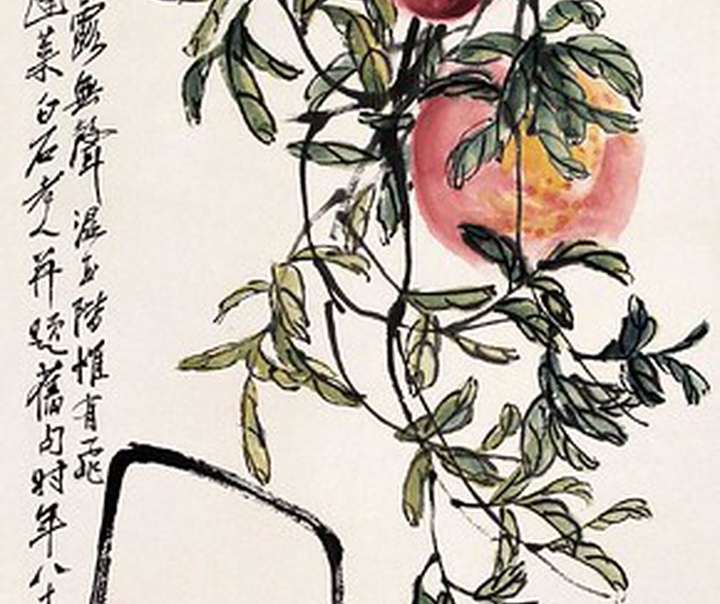 露無聲濕玉階惟有飛
菜白石老人并題舊句时年八十